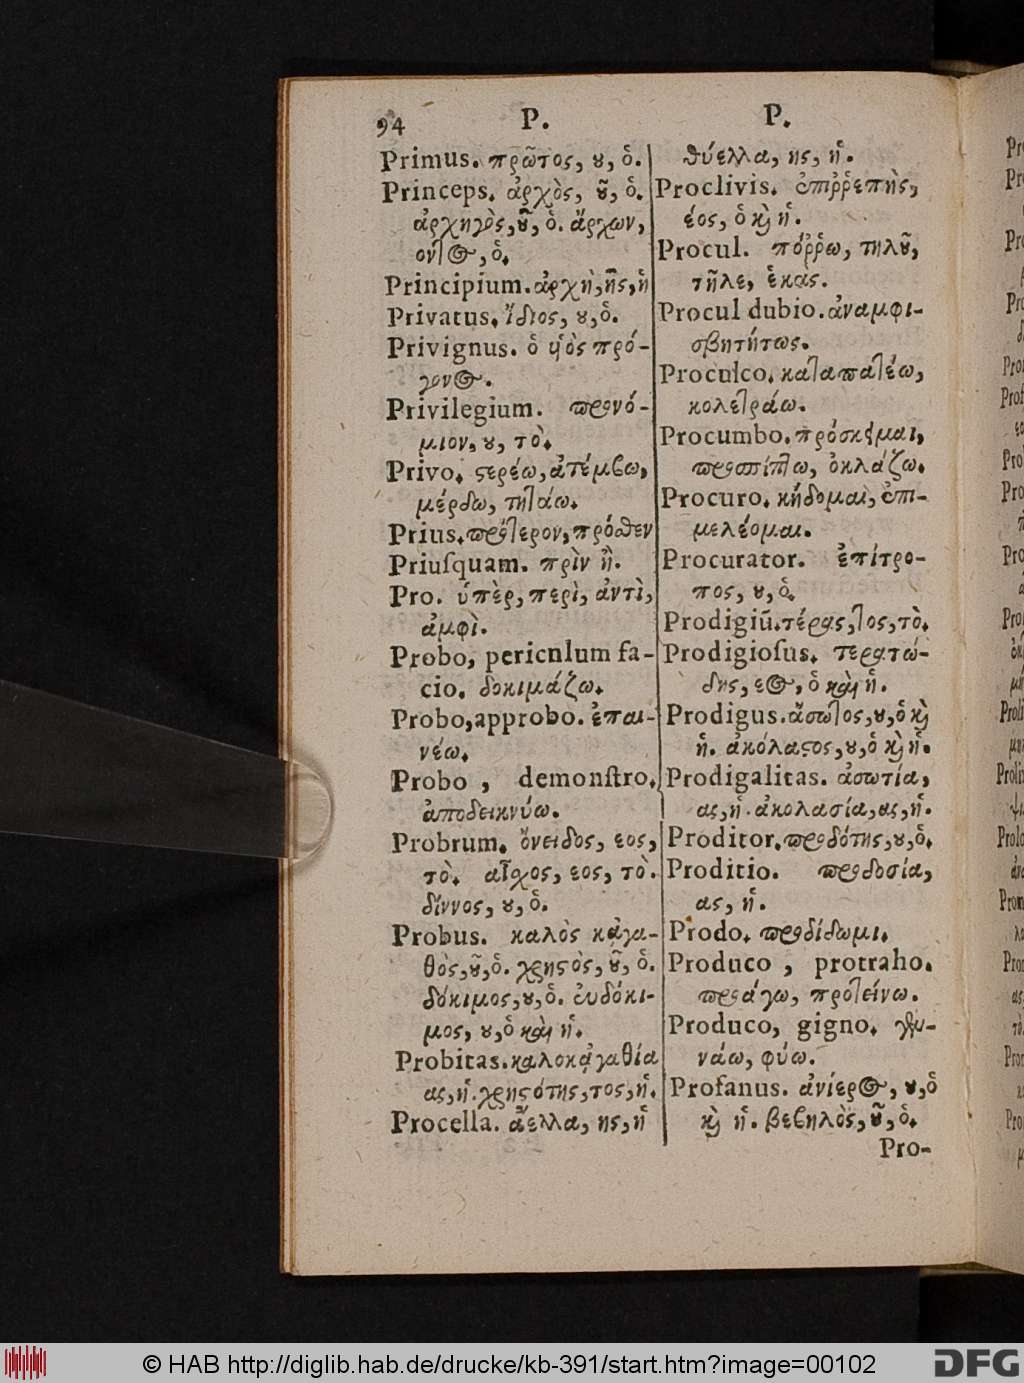 94 P. P.
Primus. πρῶτος, ȣ, ὁ.
Princeps. ἀρχὸς, ȣ͂, ὁ.
ἀρχηγὸς, ȣ͂, ὁ. ἄρχων,
οντ⊙, ὁ.
Principium. ἀρχὴ, ῆς, ἡ
Privatus. ἴδιος, ȣ, ὁ.
Privignus. ὁ υἱὸς πρό-
γονος.
Privilegium. προνό-
μιον, ȣ, τὸ.
Privo. ςερέω, ἀτέμβω,
μέρδω, τητάω.
Prius. πρότερον, πρόσθεν
Priuſquam. πρὶν ἢ.
Pro. ὑπὲρ, περὶ, ἀντὶ,
ἀμφὶ.
Probo, pericnlum fa-
cio. δοκιμάζω.
Probo, approbo. ἐπαι-
νέω.
Probo, demonſtro.
ἀποδεικνύω.
Probrum. ὄνειδος, εος,
τὸ. αἶσχος, εος, τὸ.
δίννος, ȣ, ὁ.
Probus. καλὸς κᾀγα-
θὸς, ȣ͂, ὁ. χρηςὸς, ȣ͂, ὁ.
δόκιμος, ȣ, ὁ. εὐδόκι-
μος, ȣ, ὁ καὶ ἡ.
Probitas. καλοκᾀγαθία
ας, ἡ. χρηςότης, τος, ἡ.
Procella. ἄελλα, ης, ἡ
θύελλα, ης, ἡ.
Proclivis. ἐπιῤῥεπὴς,
έος, ὁ κὶ ἡ.
Procul. πόῤῥω, τηλȣ͂,
τῆλε, ἑκὰς.
Procul dubio. ἀναμφι-
σβητήτως.
Proculco. καταπατέω,
κολετράω.
Procumbo. πρόσκειμαι,
προσπίπτω, ὀκλάζω.
Procuro. κήδομαι, ἐπι-
μελέομαι.
Procurator. ἐπίτρο-
πος, ȣ, ὁ.
Prodigiū. τέρας, τος, τὸ.
Prodigioſus. τερατώ-
δης, ε⊙, ὁ καὶ ἡ.
Prodigus. ἄσωτος, ȣ, ὁ κὶ
ἡ. ἀκόλαςος, ȣ, ὁ κὶ ἡ.
Prodigalitas. ἀσωτία,
ας, ἡ. ἀκολασία, ας, ἡ.
Proditor. προδότης, ȣ, ὁ.
Proditio. προδοσία,
ας, ἡ.
Prodo. προδίδωμι.
Produco, protraho.
προάγω, προτείνω.
Produco, gigno. γεν-
νάω, φύω.
Profanus. ἀνίερ⊙, ȣ, ὁ
κὶ ἡ. βεβηλὸς, ȣ͂, ὁ.
Pro-
© HAB http://diglib.hab.de/drucke/kb-391/start.htm?image=00102
DFG